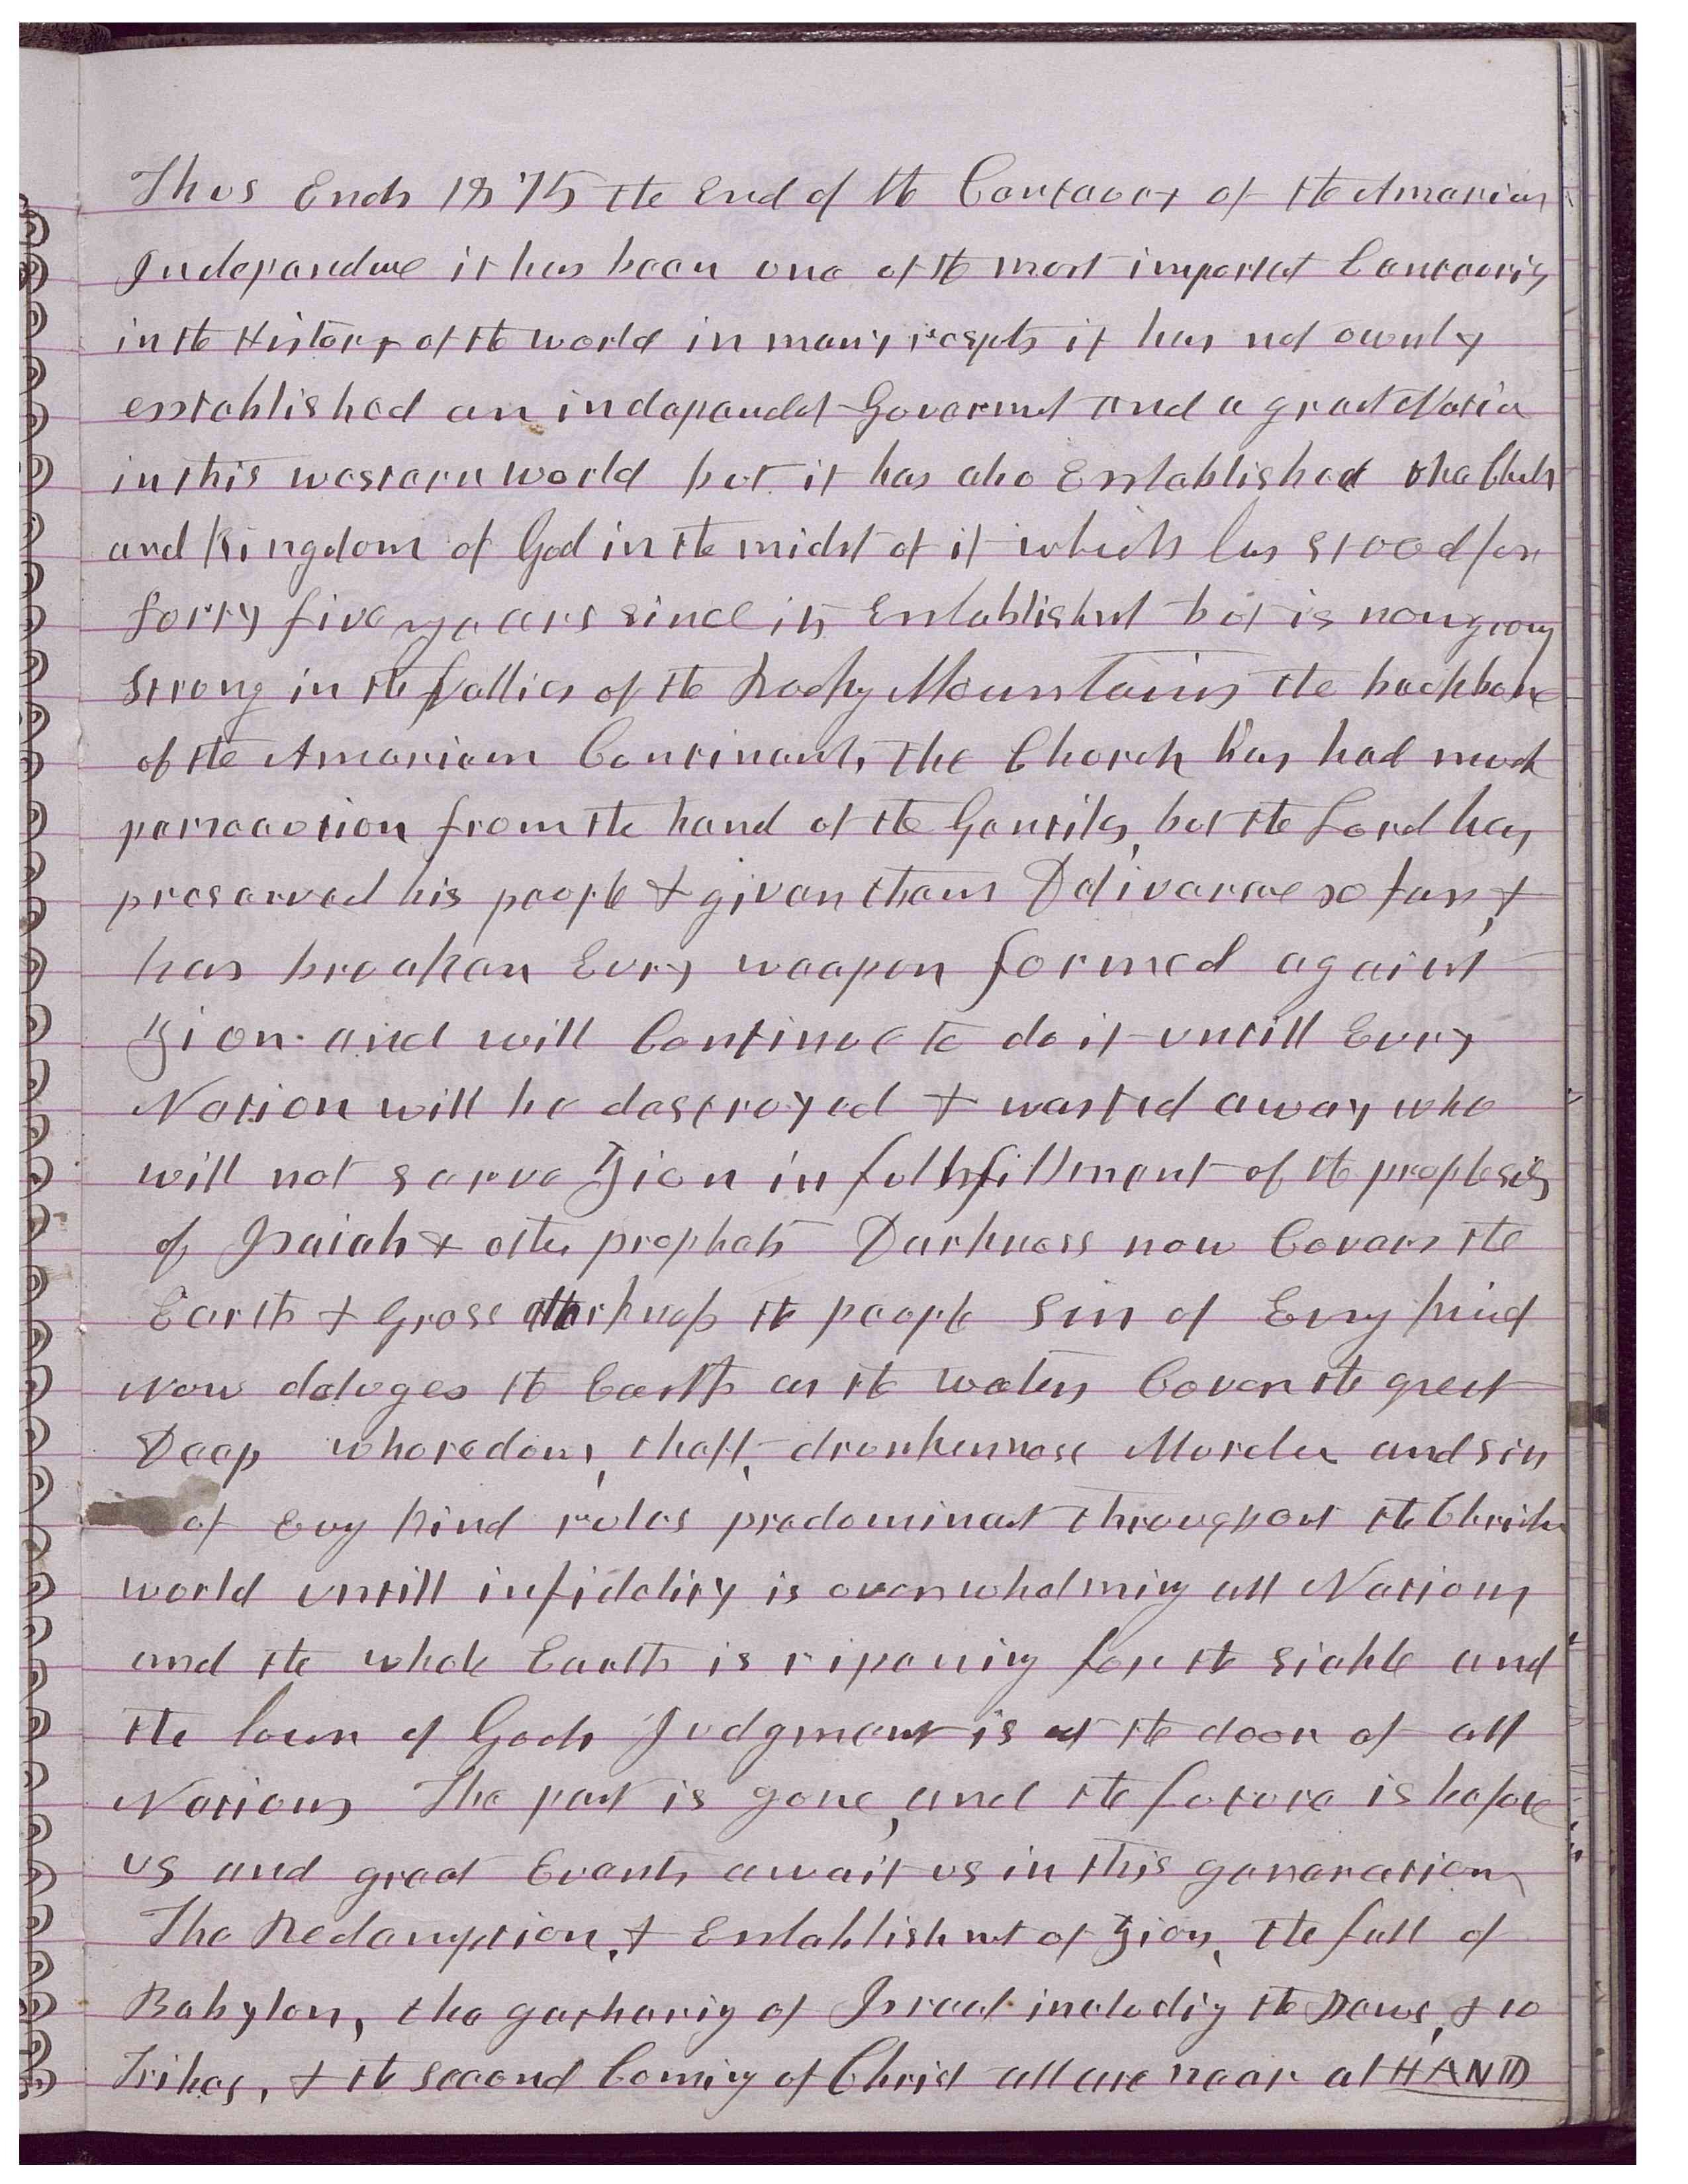 Thus Ends 1875 the End of the Centaury of the American
Independance it has been one of the most importet Centauris
in the History of the world in many respets it has not ownly
established an independet Govermet and a great Natin
in this western world but it has also Established the Chuch
and Kingdom of God in the midst of it which has stood for
forty five years since its Establishmt but is now growg
strong in the vallies of the Rocky Mountains the backbone
of the American Continant, The Church has had much
persecution from the hand of the Gentiles, but the Lord has
preserved his people & given them Deliverance so far, &
has broaken Evry weapon formed against
Zion. and will Continue to do it untill Evry
Nation will be destroyed & wasted away who
will not serve Zion in fulfillment of the prophesies
of Isaiah & other prophets Darkness now Covers the
Earth & Gross darkness the people Sin of Evry kind
Now deluges the Earth as the waters Cover the great
Deep whoredoms, theft, drunkenness Murder and sin
of Evry kind rules predominant throughout the Christn
world untill infidelity is overwhelming all Nations
and the whole Earth is ripening for the sickle and
the hour of Gods Judgment is at the door of all
Nations The past is gone, and the future is before
us and great Events await us in this generation
The Redemption, & Establishmt of Zion, the fall of
Babylon, the gathering of Israel includig the Jews, & 10
Tribes, & the second Coming of Christ all are near at HAND